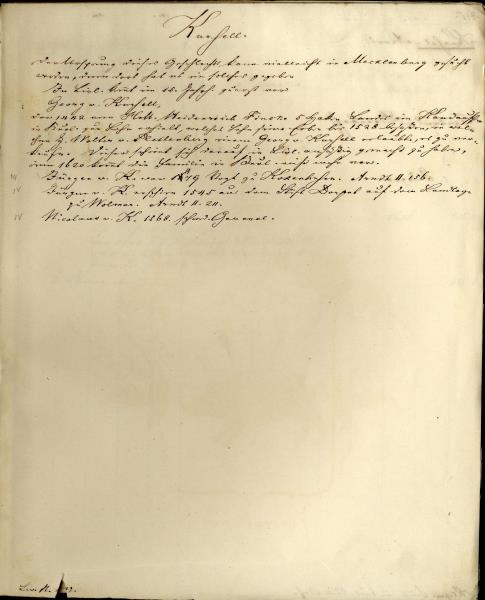 Kursell.
Der Ursprung dieses Geschlechts kann vielleicht in Mecklenburg gesucht
werden, denn dort hat es ein solches gegeben.
In Livl. tritt im 15. Jahrh. zuerst
Georg v. Kursell,
der 1442 vom Heidenreich Fincke 5 Haken Landes im
in zu Lehn erhält, welches Lehn seine Erben bis 1528 besassen, in welchem
H. Walter v. Plettenberg einem Georg v. Kursell erlaubte, es zu verkaufen.
Dieser scheint sich darauf in Livl. ansässig gemacht zu haben,
um 1620 die Familie in nicht mehr.
Jürgen v. K. war 1549 Vogt zu Arndt II. 256.
IV Jürgen v. K. erschien 1545 aus dem Stift Dorpat auf dem Landtage
zu Wolmar. Arndt II. 211.
IV Nicolaus v. K. 1568. schwed. General.